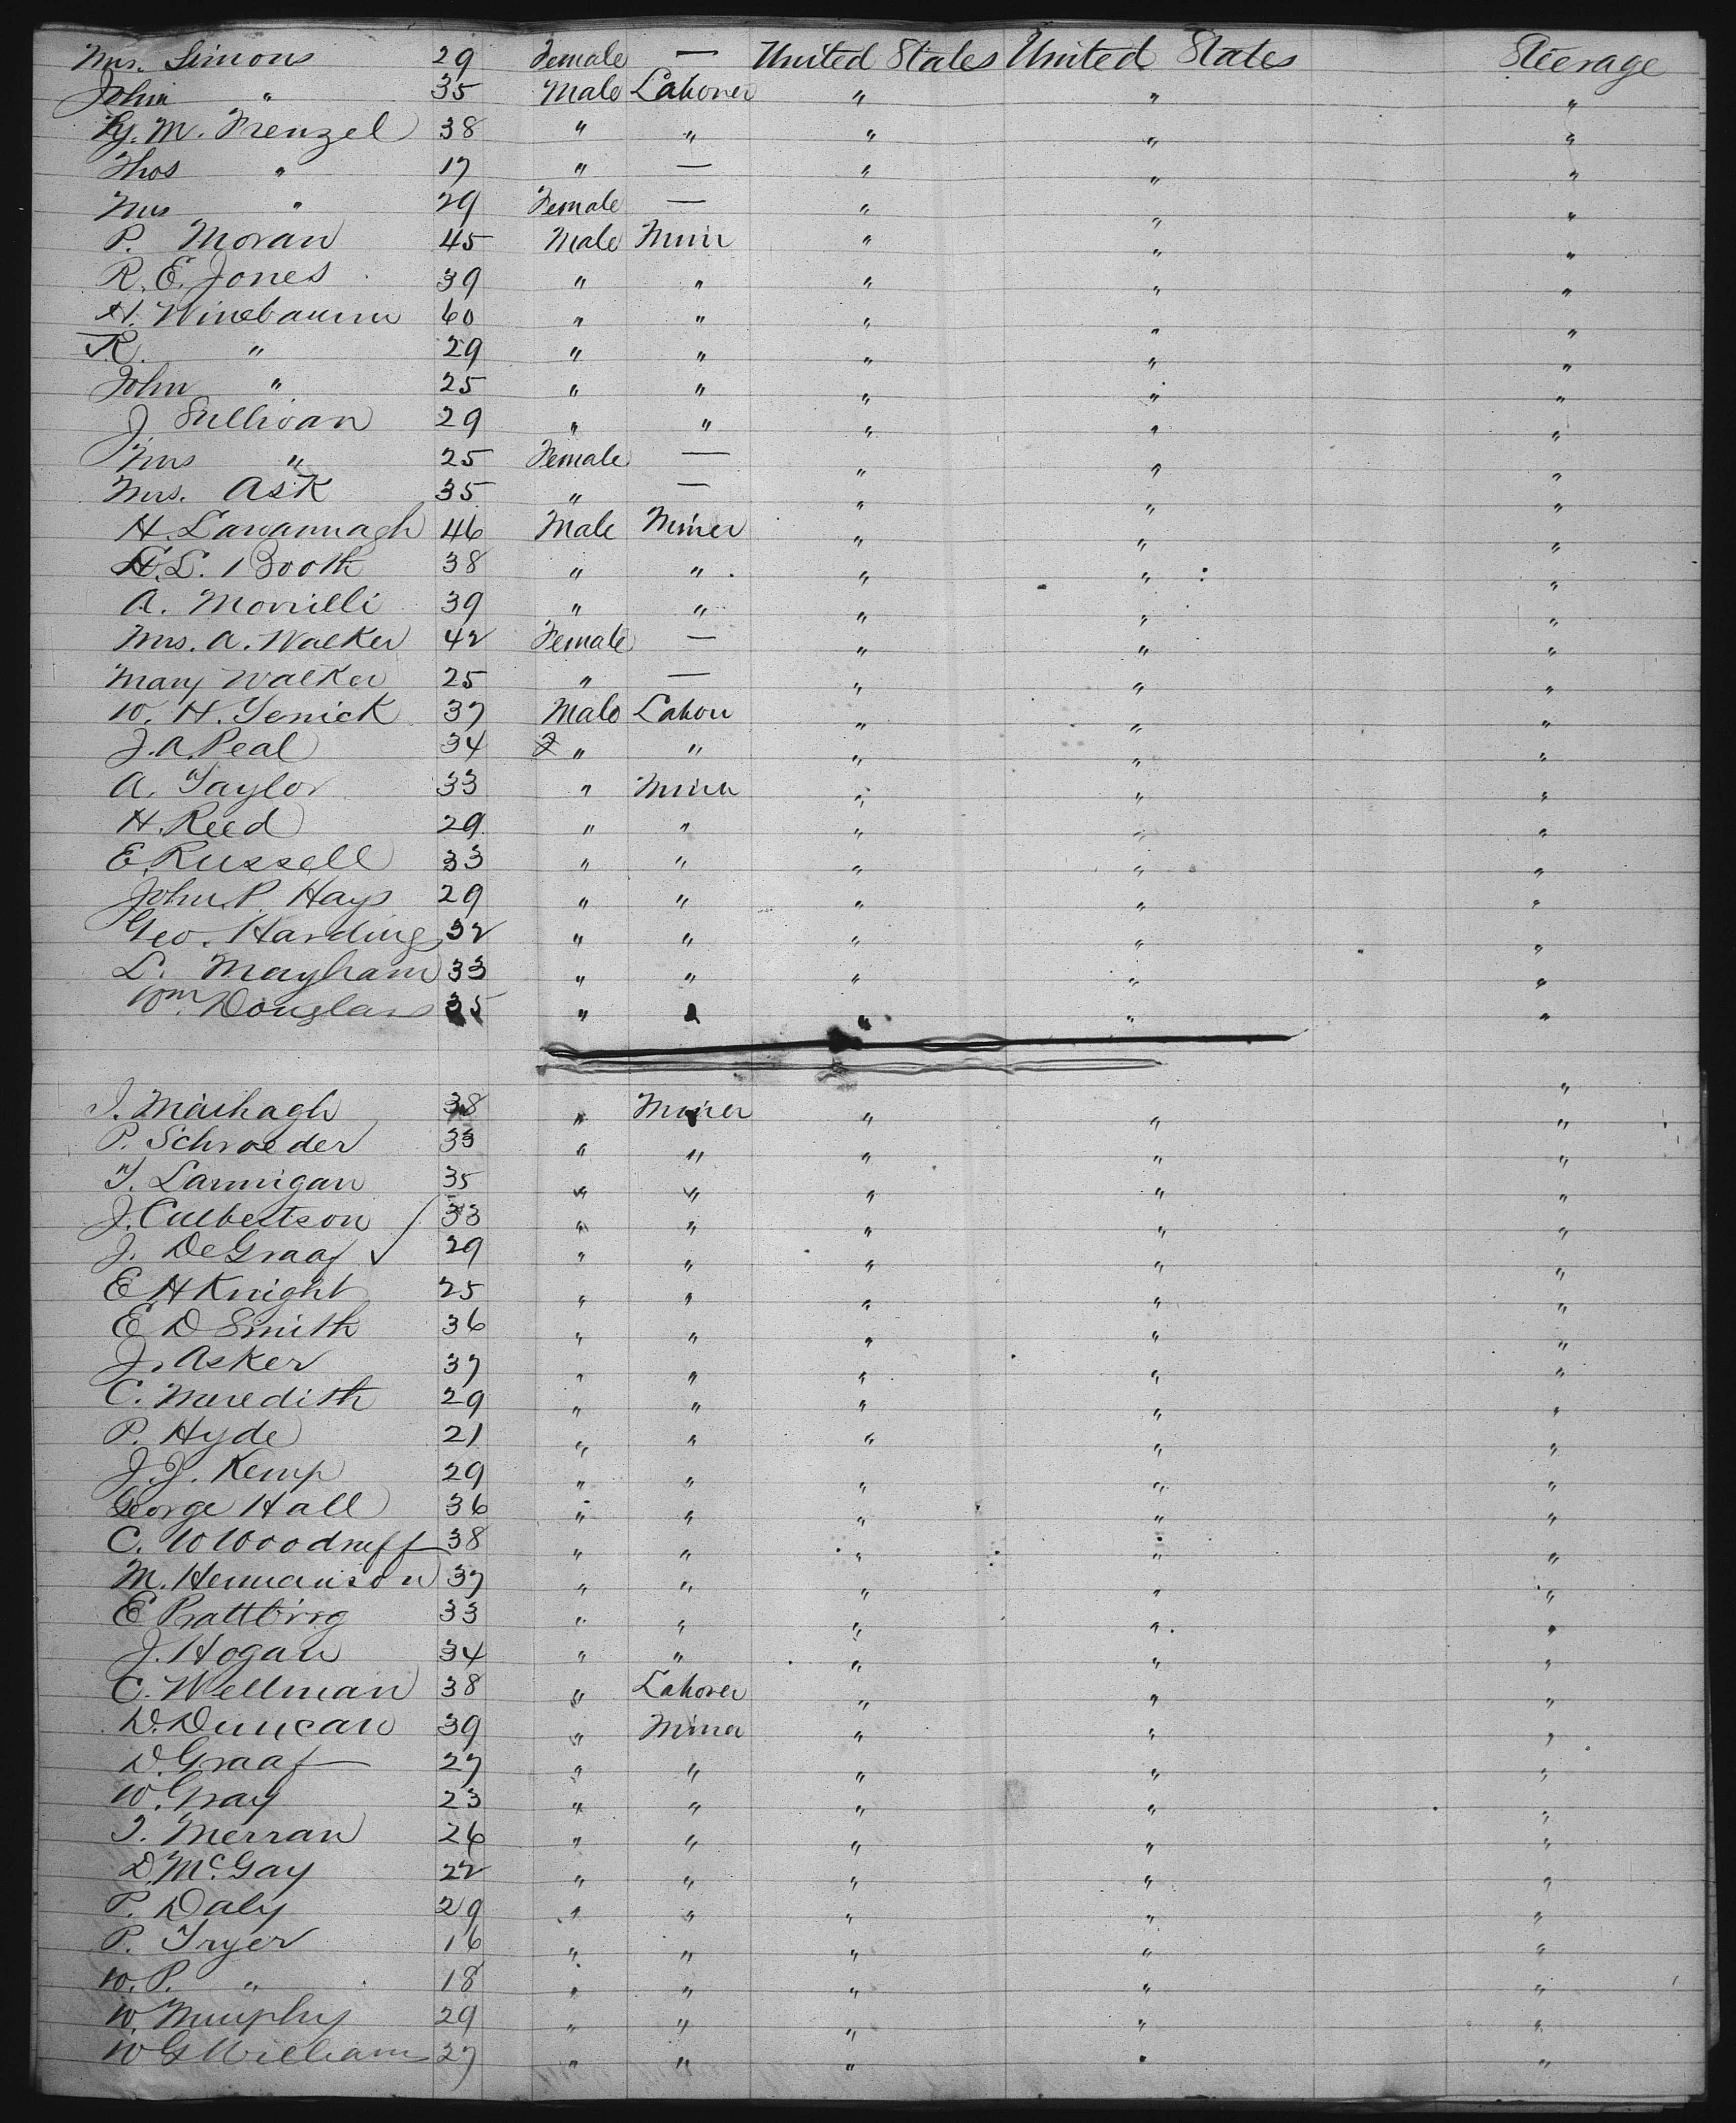 Mrs. Simons 29 Female — United States United States Steerage
John " 35 Male Laborer " " "
G. M. Frenzel 38 " " " " "
Thos " 17 " — " " "
Mrs " 29 Female — " " "
P. Moran 45 Male Miner " " "
R. E. Jones 39 " " " " "
H. Winebaum 60 " " " " "
R. " 29 " " " " "
John " 25 " " " " "
J Sullivan 29 " " " " "
Mrs " 25 Female — " " "
Mrs. Ask 35 " — " " "
H. Cavannagh 46 Male Miner " " "
H. L. Booth 38 " " " " "
A. Morrilli 39 " " " " "
Mrs. A. Walker 42 Female — " " "
Mary Walker 25 " — " " "
W. H. Yenick 37 Male Labor " " "
J. A. Peal 34 " " " " "
A. Taylor 33 " Miner " " "
H. Reed 29 " " " " "
E. Russell 33 " " " " "
John P. Hays 29 " " " " "
Geo. Harding 32 " " " " "
L. Mayham 33 " " " " "
Wm. Douglass 35 " " " " "
"
38 " Miner " " "
P. Schroeder 33 " " " " "
T. Lannigan 35 " " " " "
J. Culbertson 33 " " " " "
J. DeGraaf 29 " " " " "
E H Knight 25 " " " " "
E D Smith 36 " " " " "
J. Asker 37 " " " " "
C. Meredith 29 " " " " "
P. Hyde 21 " " " " "
J. J. Kemp 29 " " " " "
George Hall 36 " " " " "
C. W Woodruff 38 " " " " "
M. Hermanson 37 " " " " "
E 33 " " " " "
J. Hogan 34 " " " " "
C. Wellman 38 " Laborer " " "
D. Duncan 39 " Miner " " "
D. Graaf 27 " " " " "
W. Gray 23 " " " " "
T. Merran 26 " " " " "
D. McGay 22 " " " " "
P. Daly 29 " " " " "
P. Fryer 16 " " " " "
W. P. " 18 " " " " "
W. Murphy 29 " " " " "
W G William 27 " " " " "